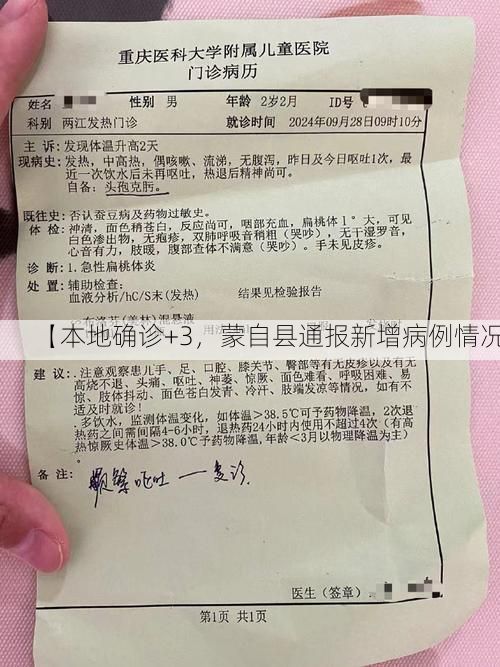 重庆医科大学附属儿童医院
门诊病历
姓名 性别 男 年龄 2岁2月 ID号
科别 两江发热门诊 就诊时间 2024年09月28日09时10分
主 诉: 发现体温升高2天
现病史: 发热，中高热，偶咳嗽、流涕，无腹泻，昨日及今日呕吐1次，最
近一次饮水后未再呕吐，热退后精神尚可。
自备：头孢克肟。
既往史: 否认蚕豆病及药物过敏史。
体 检: 神清，面色稍苍白，反应尚可，咽部充血，扁桃体Ⅰ°大，可见
白色渗出物，无疱疹，双肺呼吸音稍粗（哭吵），无干湿罗音，
心音有力，肢暖，腹部查体不满意（哭吵）。手未见皮疹。
诊 断: 1.急性扁桃体炎
处 置: 辅助检查：
血液分析/hC/S末(发热) 结果见检验报告
布洛芬(美林)混悬液
【本地确诊+3，蒙自县通报新增病例情况
建 议: .注意观察患儿手、足、口腔、膝关节、臀部等有无皮疹以及有无
高烧不退、头痛、呕吐、神萎、惊厥、面色苍白、呼吸困难、易
惊、肢体抖动、面色苍白发青、冷汗、肢端发凉等情况，如有不
适及时就诊！
.多饮水，监测体温变化，如体温＞38.5℃可予药物降温，2次退
热药之间需间隔4-6小时，退热药24小时内使用不超过4次（有高
热惊厥史体温＞38.0℃予药物降温,年龄＜3月以物理降温为主）
备 注: 频繁呕吐 — 复诊
医生（签章）
第1页 共1页